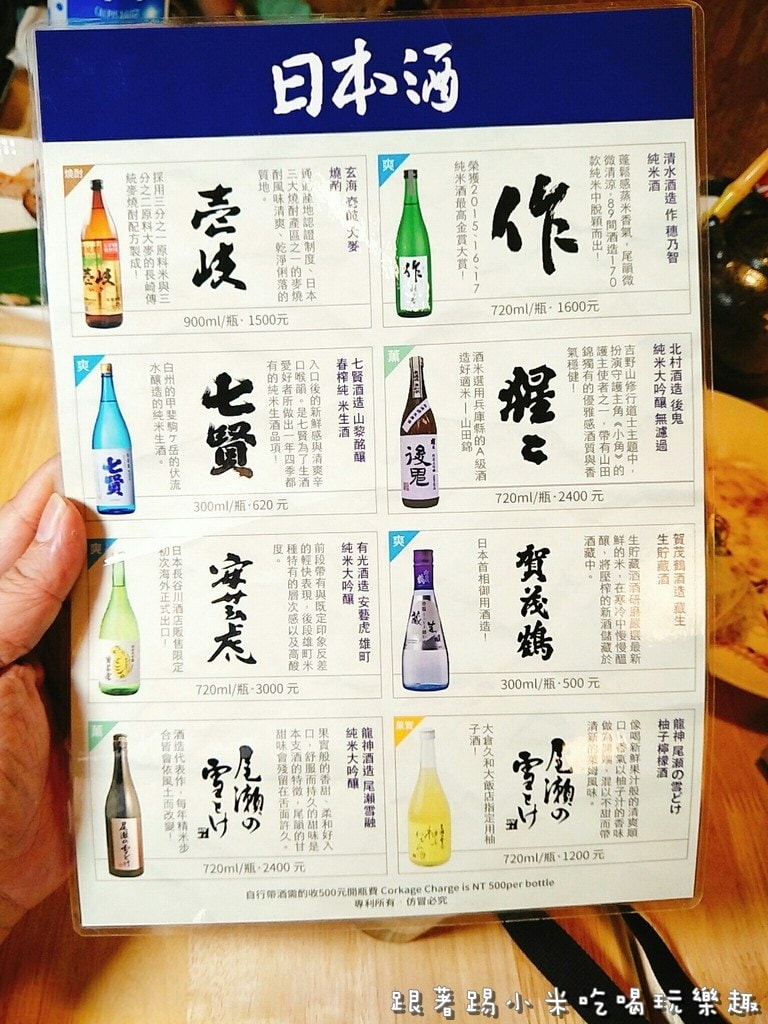 日本酒
燒酎
玄海 壱岐 大麥
燒酌
通過產地認證制度、日本
三大燒酎產區之一的麥燒
酎風味清爽、乾淨俐落的
質地。
壱岐
採用三分之一原料米與三
分之二原料大麥的長崎傳
統麥燒酎配方製成！
壱岐
900ml/瓶·1500元
爽
清水酒造 作 穗乃智
純米酒
蓬鬆感蒸米香氣，尾韻微
微清涼，89間酒造170
款純米中脫穎而出！
作
榮獲2015、16、17
純米酒最高金賞大賞！
作
720ml/瓶· 1600元
爽
七賢酒造 山黎酩釀
春榨純 米生酒
入口後的新鮮感與清爽辛
口喉韻。是七賢為了生酒
愛好者所做出一年四季都
有的純米生酒品項！
七賢
白州的甲斐駒ヶ岳的伏流
水釀造的純米生酒。
七賢
300ml/瓶·620 元
薰
北村酒造 後鬼
純米大吟釀 無濾過
吉野山修行道士主題中，
扮演守護主角《小角》的
護主使者之一，帶有山田
錦獨有的優雅感酒質與香
氣穩健！
猩々
酒米選用兵庫縣的A級酒
造好適米－山田錦
後鬼
720ml/瓶·2400 元
爽
有光酒造 安藝虎 雄町
純米大吟釀
前段帶有與既定印象反差
的輕快表現，後段雄町米
種特有的層次感以及高酸
度。
安芸虎
日本長谷川酒店販售限定
初次海外正式出口！
720ml/瓶·3000 元
爽
賀茂鶴酒造 藏生
生貯藏酒
生貯藏酒酒研磨嚴選最新
鮮的米，在寒冷中慢慢醞
釀，將壓榨的新酒儲藏於
酒藏中。
賀茂鶴
日本首相御用酒造！
300ml/瓶·500 元
薰
龍神酒造 尾瀨雪融
純米大吟釀
果實般的香甜、柔和好入
口，舒服而持久的甜味是
本支酒的特徵，尾韻的甘
甜味會殘留在舌面許久。
尾瀬の
雪どけ
酒造代表作，每年精米步
合皆會依風土而改變！
尾瀬の雪どけ
720ml/瓶·2400 元
果實
龍神 尾瀬の雪どけ
柚子檸檬酒
像喝新鮮果汁般的清爽順
口，香氣以柚子汁的香味
做為開端，混以不甜而帶
清新的萊姆風味。
尾瀬の
雪どけ
大倉久和大飯店指定用柚
子酒！
720ml/瓶·1200 元
自行帶酒需酌收500元開瓶費 Corkage Charge is NT 500per bottle
專利所有·仿冒必究
跟著踢小米吃喝玩樂趣